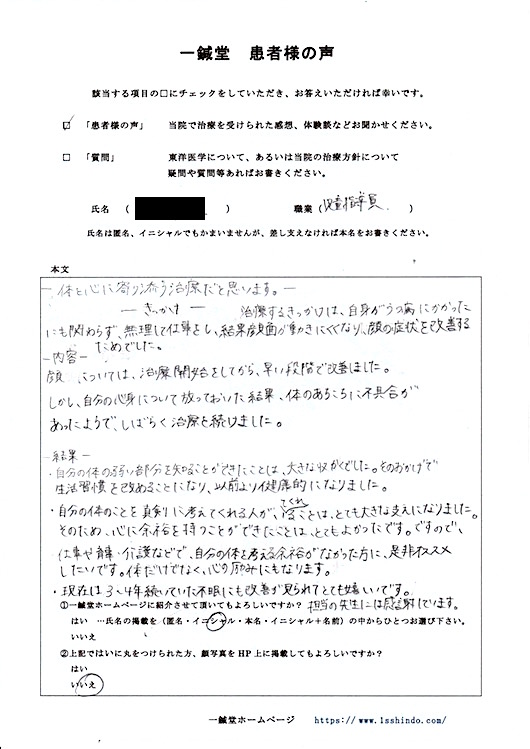 一鍼堂 患者様の声
該当する項目の□にチェックをしていただき、お答えいただければ幸いです。
☑ 「患者様の声」 当院で治療を受けられた感想、体験談などお聞かせください。
□ 「質問」 東洋医学について、あるいは当院の治療方針について
疑問や質問等あればお書きください。
氏名 ( ) 職業 (児童指導員 )
氏名は匿名、イニシャルでもかまいませんが、差し支えなければ本名をお書きください。
本文
― 体と心に寄り添う治療だと思います。―
― きっかけ ― 治療するきっかけは、自身がうつ病にかかった
にも関わらず、無理して仕事をし、結果顔面が動きにくくなり、顔の症状を改善する
ためでした。
― 内容 ―
顔 については、治療開始をしてから、早い段階で改善しました。
しかし、自分の心身について放っておいた結果、体のあちこちに不具合が
あったようで、しばらく治療を続けました。
― 結果 ―
・自分の体の弱い部分を知ることができたことは、大きな収かくでした。そのおかげで
生活習慣を改めることになり、以前より健康的になりました。
・自分の体のことを真剣に考えてくれる人がいてくれることは、とても大きな支えになりました。
そのため、心に余裕を持つことができたことは、とてもよかったです。ですので、
仕事や育事・介護などで、自分の体を考える余裕がなかった方に、是非オススメ
したいです。体だけでなく、心の励みにもなります。
・現在は3〜4年続いていた不眠にも改善が見られてとても嬉しいです。
担当の先生には感謝しています。
①一鍼堂ホームページに紹介させて頂いてもよろしいですか？
はい …氏名の掲載を（匿名・イニシャル・本名・イニシャル＋名前）の中からひとつお選び下さい。
いいえ
②上記ではいに丸をつけられた方、顔写真をHP上に掲載してもよろしいですか？
はい
いいえ
一鍼堂ホームページ https://www.1sshindo.com/